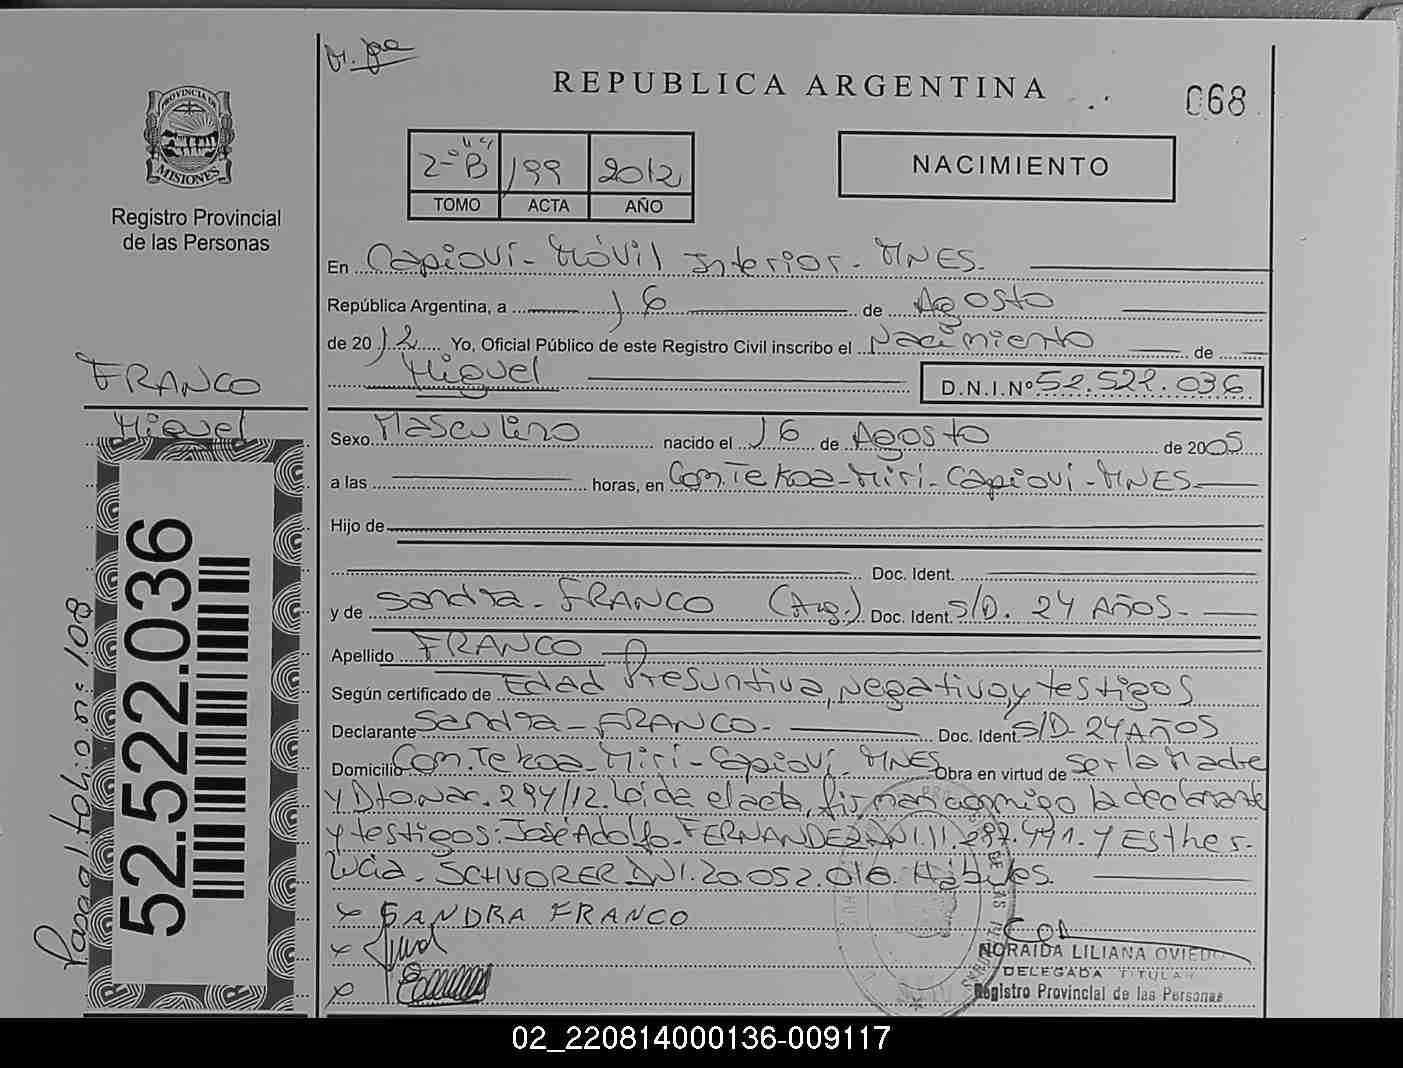 REPUBLICA ARGENTINA
068
PROVINCIA DE
MISIONES
Registro Provincial
de las Personas
2º "B" 199 2012
TOMO ACTA AÑO
NACIMIENTO
En Capioví - Móvil Interior - MNES.
República Argentina, a 16 de Agosto
de 2012 Yo, Oficial Público de este Registro Civil inscribo el Nacimiento de
Miguel D.N.I.Nº 52.522.036
FRANCO
Miguel
Sexo Masculino nacido el 16 de Agosto de 2005
a las horas, en Com. Tekoa-Miri-Capioví-MNES
Hijo de
Doc. Ident.
y de Sandra - FRANCO (Arg.) Doc. Ident. S/D. 24 AÑOS-
Apellido FRANCO
Según certificado de Edad Presuntiva, negativo, y testigos
Declarante Sandra - FRANCO - Doc. Ident. S/D- 24 AÑOS
Domicilio Com. Tekoa-Miri-Capioví-MNES Obra en virtud de ser la Madre
y Dto. Nac. 294/12. Leída el acta, firman conmigo la declarante
y testigos: José Adolfo - FERNANDEZ DNI. 11.287.441. Y Esther -
Lucia - SCHVORER DNI. 20.052.016. Hábiles.
x SANDRA FRANCO
x
x
NORAIDA LILIANA OVIEDO
DELEGADA TITULAR
Registro Provincial de las Personas
52.522.036
Pasa al folio nº: 108
02_220814000136-009117